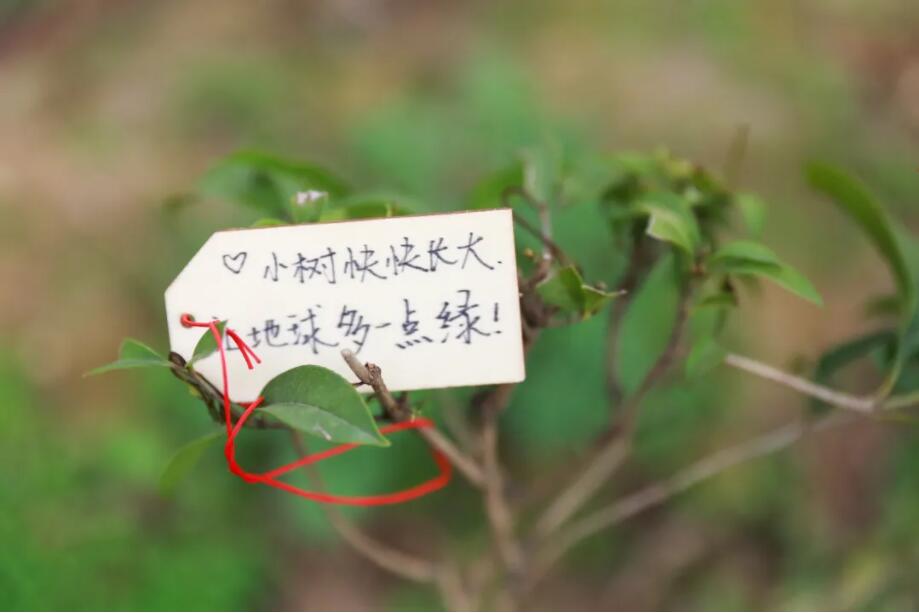 ♡ 小树快快长大.
让地球多一点绿!